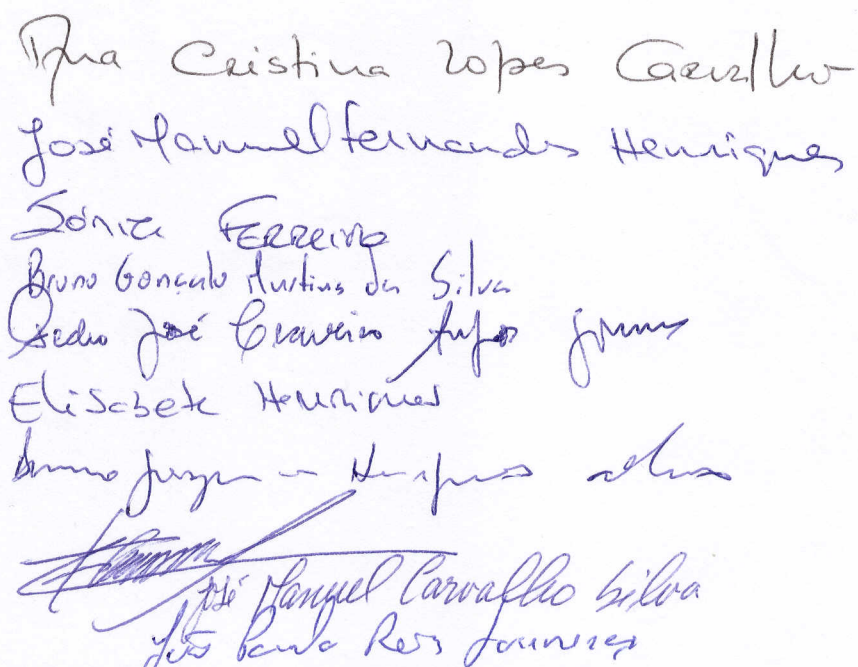 Ana Cristina Lopes Carvalho
José Manuel Fernandes Henriques
Sónia FERREIRA
Bruno Gonçalo Martins da Silva
Pedro José Craveiro
Elisabete Henriques
Bruno
José Manuel Carvalho Silva
João Paulo Reis